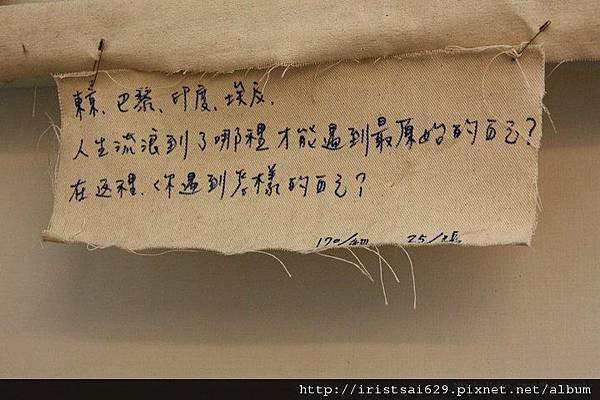 東京、巴黎、印度、埃及、
人生流浪到了哪裡才能遇到最原始的自己?
在这裡、你遇到怎樣的自己?
170/組 25/張
http://iristsai629.pixnet.net/album